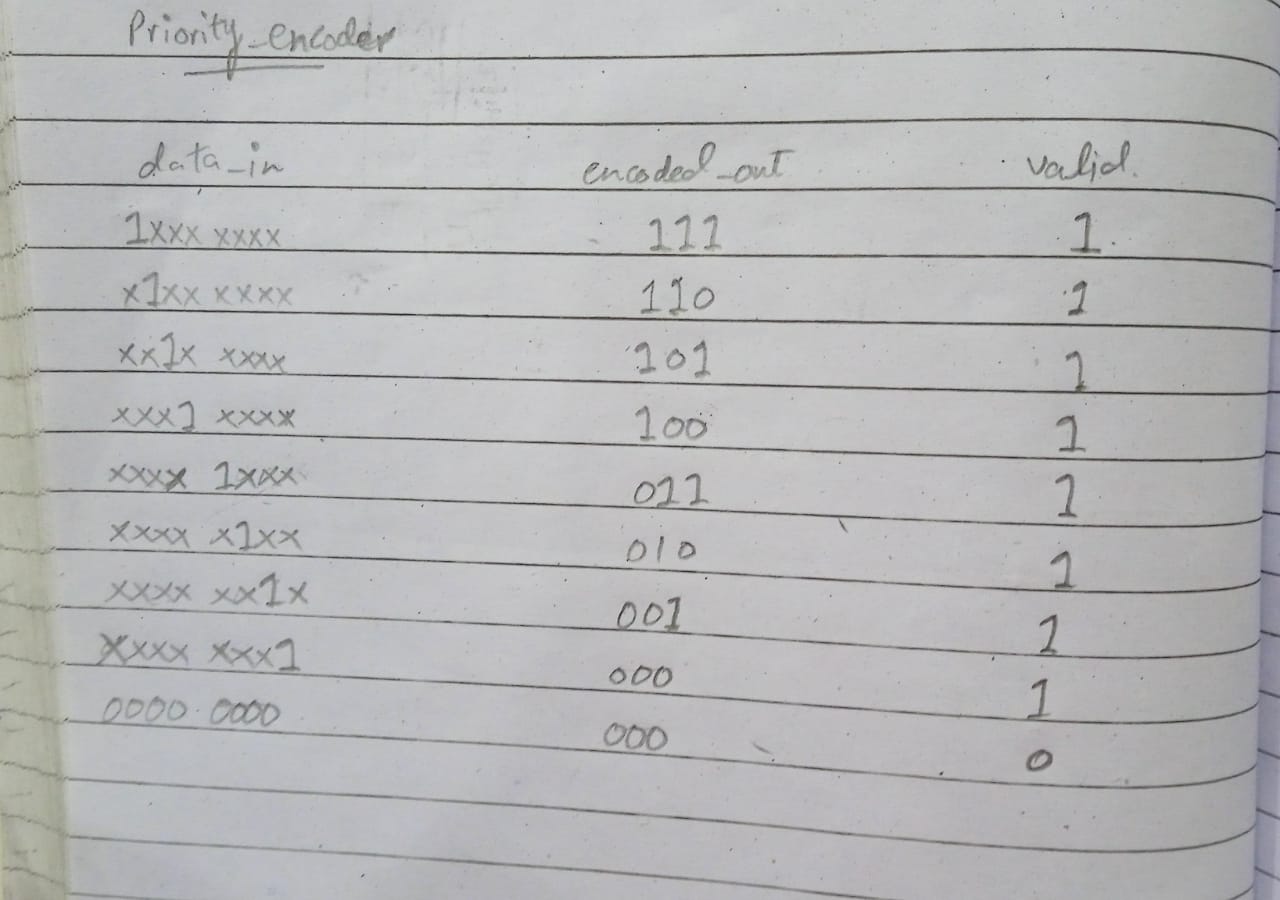 Priority_encoder
data_in encoded_out valid.
1xxx xxxx 111 1.
x1xx xxxx 110 1
xx1x xxxx 101 1
xxx1 xxxx 100 1
xxxx 1xxx 011 1
xxxx x1xx 010 1
xxxx xx1x 001 1
xxxx xxx1 000 1
0000 0000 000 0